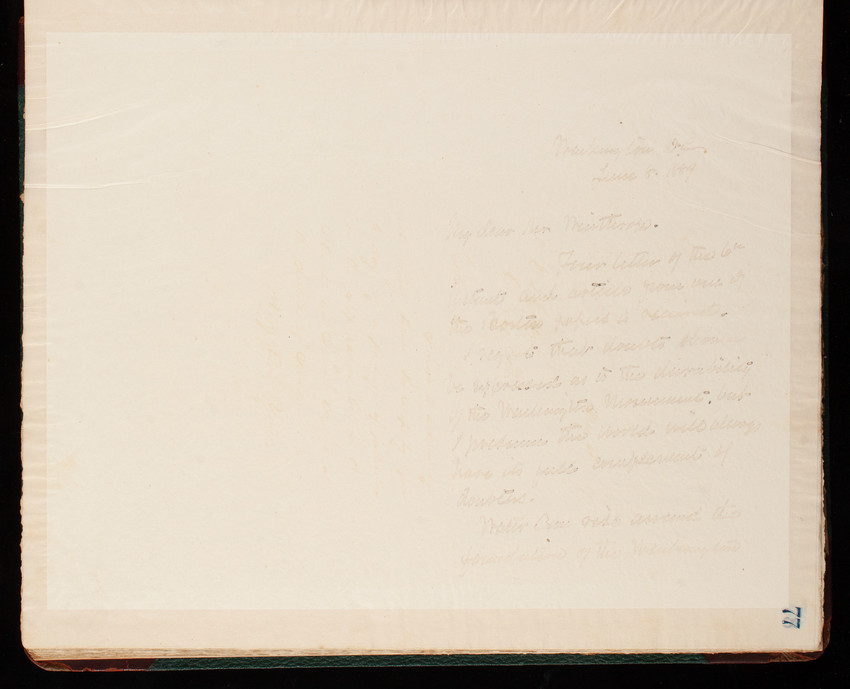 Washington D.C.
June 8. 1887
My dear Mr Winthrop.
Your letter of the 6th
instant and article from one of
the Boston papers is received.
I regret that doubts should
be expressed as to the durability
of the Washington Monument, but
I presume the world will always
have its due complement of
doubters.
Water can rest around the
foundations of the Washington
77